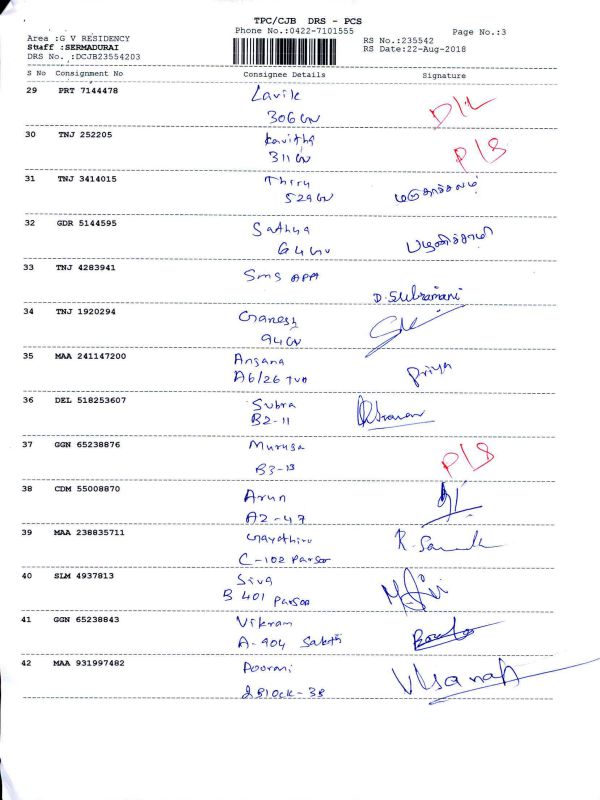 TPC/CJB DRS - PCS
Phone No.:0422-7101555
Page No.:3
Area :G V RESIDENCY
Staff :SERMADURAI
DRS No. :DCJB23554203
RS No.:235542
RS Date:22-Aug-2018
S No Consignment No Consignee Details Signature
29 PRT 7144478 Lavik
306 GV D/L
30 TNJ 252205 Kavitha
311 GV P/S
31 TNJ 3414015 Thiru
529 GV
32 GDR 5144595 Sathya
64 GV பழனிச்சாமி
33 TNJ 4283941 Sms APPA
D. Subramani
34 TNJ 1920294 Ganesh
94 GV
35 MAA 241147200 Angana
A6/26 TVD Priya
36 DEL 518253607 Subra
B2-11
37 GGN 65238876 Muruga
B3-13 P/S
38 CDM 55008870 Arun
A2-47
39 MAA 238835711 Gayathiru
C-102 Parson R.
40 SLM 4937813 Siva
B 401 Parson
41 GGN 65238843 Vikram
A-904 Sakthi
42 MAA 931997482 Poorani
2 Block-3B